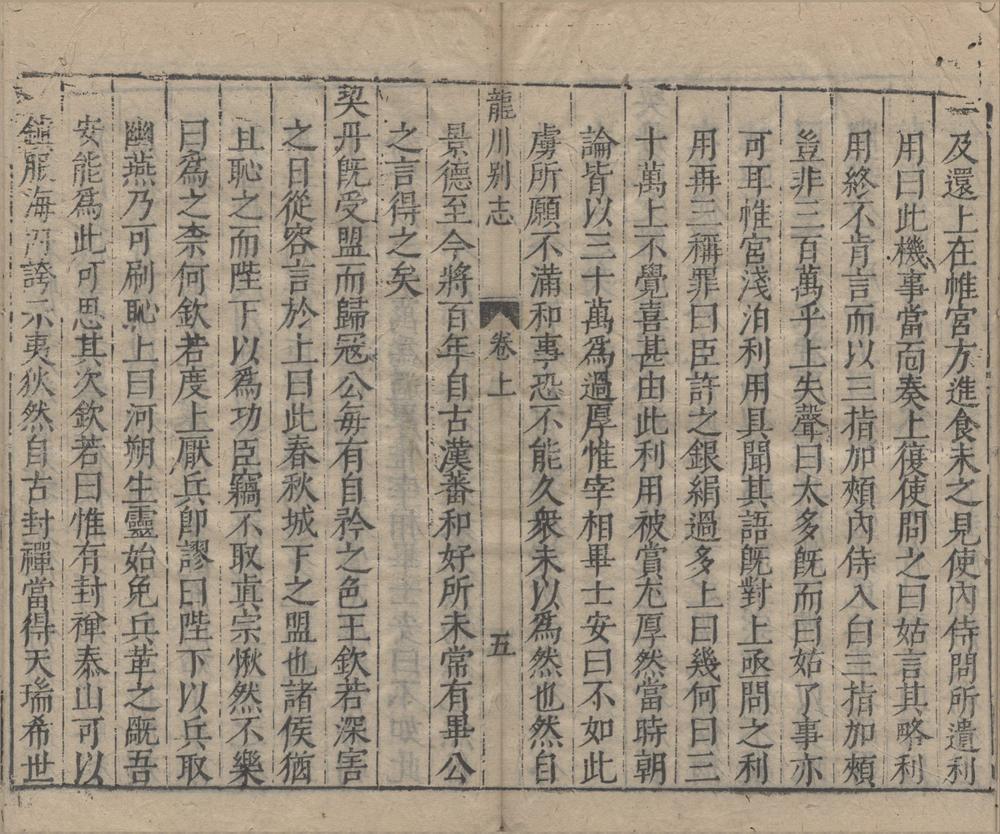 及還上在帷宮方進食未之見使內侍問所遺利
用曰此機事當面奏上復使問之曰姑言其略利
用終不肯言而以三指加頰內侍入白三指加頰
豈非三百萬乎上失聲曰太多既而曰姑了事亦
可耳帷宮淺泊利用具聞其語既對上亟問之利
用再三稱罪曰臣許之銀絹過多上曰幾何曰三
十萬上不覺喜甚由此利用被賞尤厚然當時朝
論皆以三十萬爲過厚惟宰相畢士安曰不如此
虜所願不滿和事恐不能久衆未以爲然也然自
景德至今將百年自古漢蕃和好所未常有畢公
之言得之矣
龍川別志
卷上
五
契丹既受盟而歸寇公每有自矜之色王欽若深害
之日從容言於上曰此春秋城下之盟也諸侯猶
且恥之而陛下以爲功臣竊不取眞宗愀然不樂
曰爲之柰何欽若度上厭兵卽謬曰陛下以兵取
幽燕乃可刷恥上曰河朔生靈始免兵革之厩吾
安能爲此可思其次欽若曰惟有封禪泰山可以
鎮服海內誇示夷狄然自古封禪當得天瑞希世